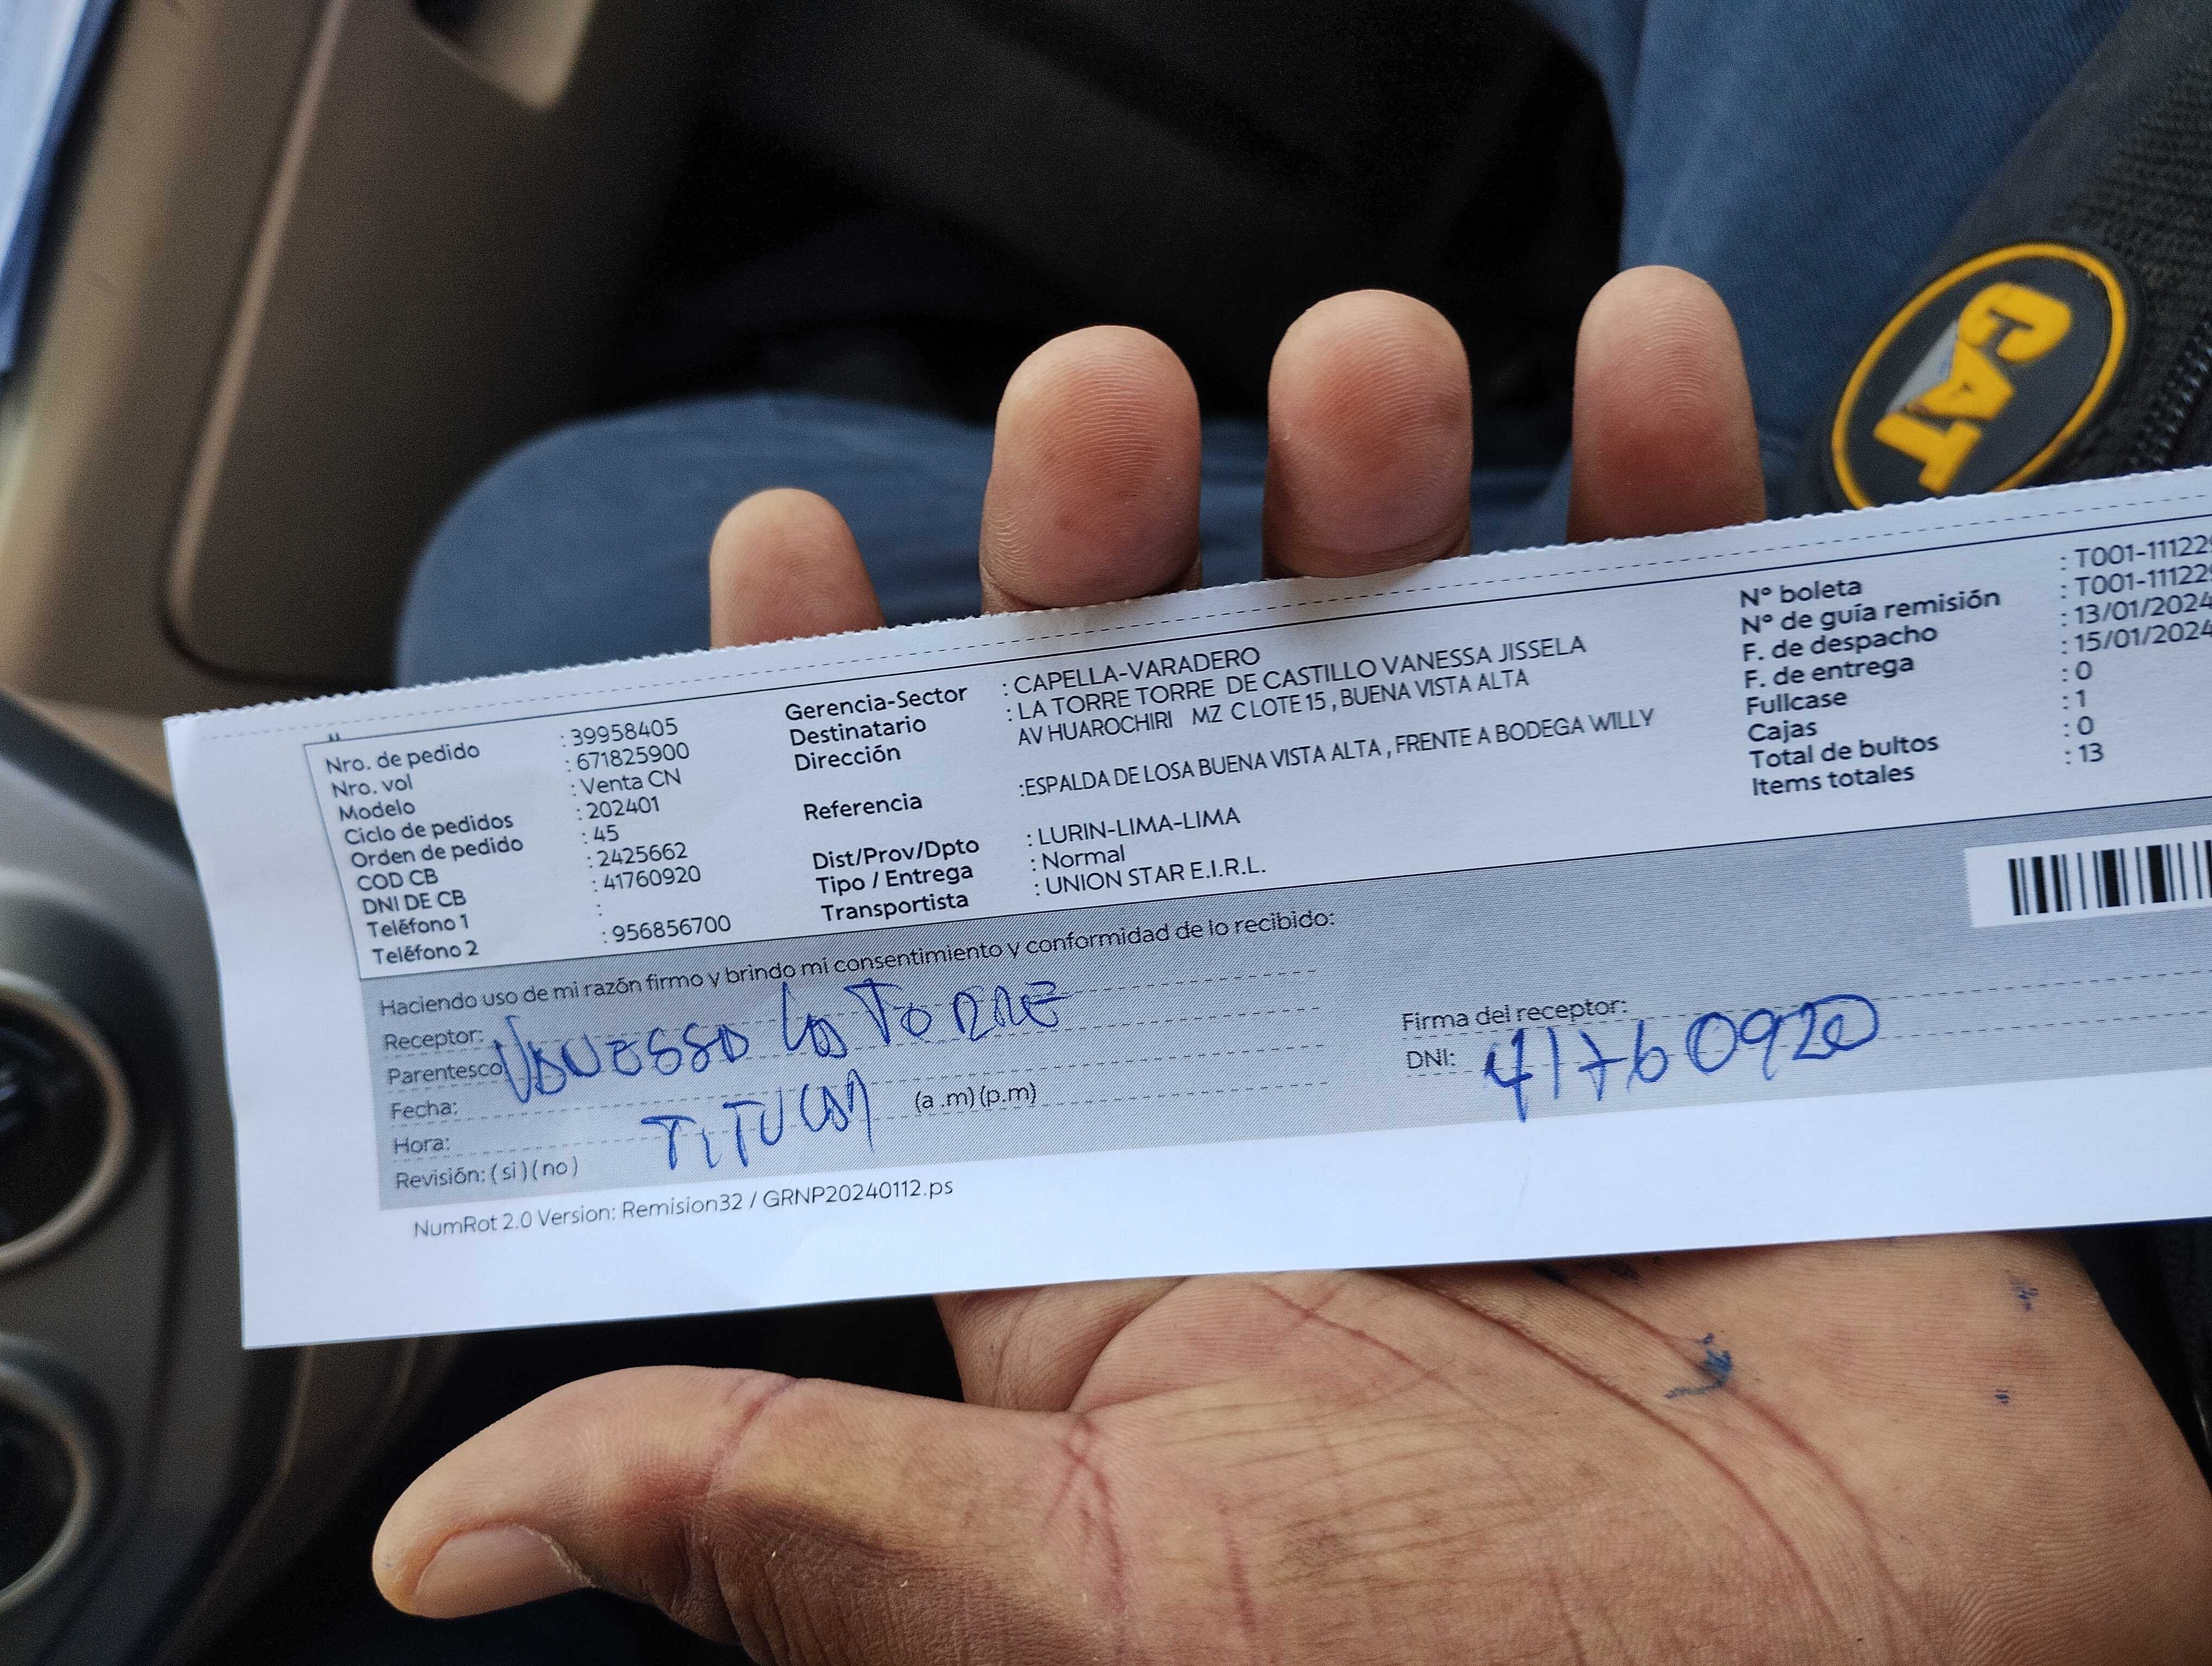 CAT
Nro. de pedido : 39958405
Nro. vol : 671825900
Modelo : Venta CN
Ciclo de pedidos : 202401
Orden de pedido : 45
COD CB : 2425662
DNI DE CB : 41760920
Teléfono 1 :
Teléfono 2 : 956856700
Gerencia-Sector : CAPELLA-VARADERO
Destinatario : LA TORRE TORRE DE CASTILLO VANESSA JISSELA
Dirección AV HUAROCHIRI MZ C LOTE 15 , BUENA VISTA ALTA
Referencia :ESPALDA DE LOSA BUENA VISTA ALTA , FRENTE A BODEGA WILLY
Dist/Prov/Dpto : LURIN-LIMA-LIMA
Tipo / Entrega : Normal
Transportista : UNION STAR E.I.R.L.
N° boleta : T001-11122
N° de guía remisión : T001-11122
F. de despacho : 13/01/2024
F. de entrega : 15/01/2024
Fullcase : 0
Cajas : 1
Total de bultos : 0
Items totales : 13
Haciendo uso de mi razón firmo y brindo mi consentimiento y conformidad de lo recibido:
Receptor: VANESSA La TORRE
Parentesco:
Fecha:
Hora: TITULAR (a .m) (p.m)
Revisión: ( si ) ( no )
Firma del receptor:
DNI: 41760920
NumRot 2.0 Version: Remision32 / GRNP20240112.ps